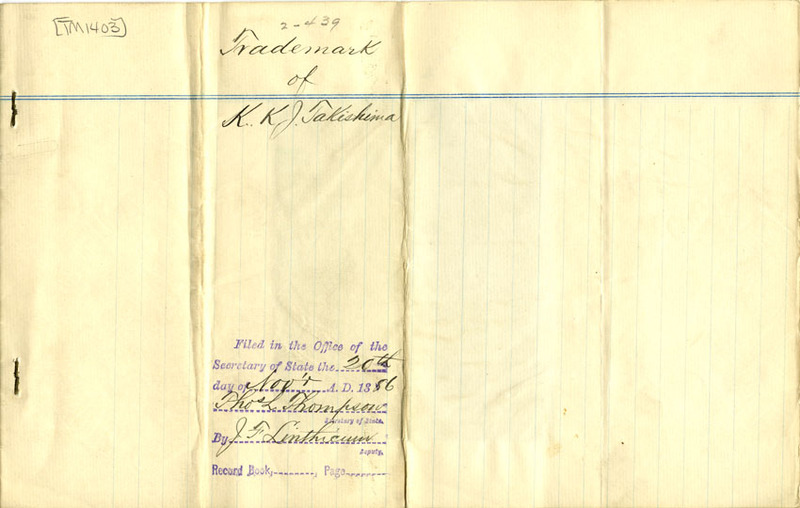 [TM1403]
2-439
Trademark
of
K. K. J. Takishima
Filed in the Office of the
Secretary of State the 20th
day of Nov'r A. D. 1886
Thos L. Thompson
Secretary of State.
By J. F. Linthicum
Deputy.
Record Book, , Page